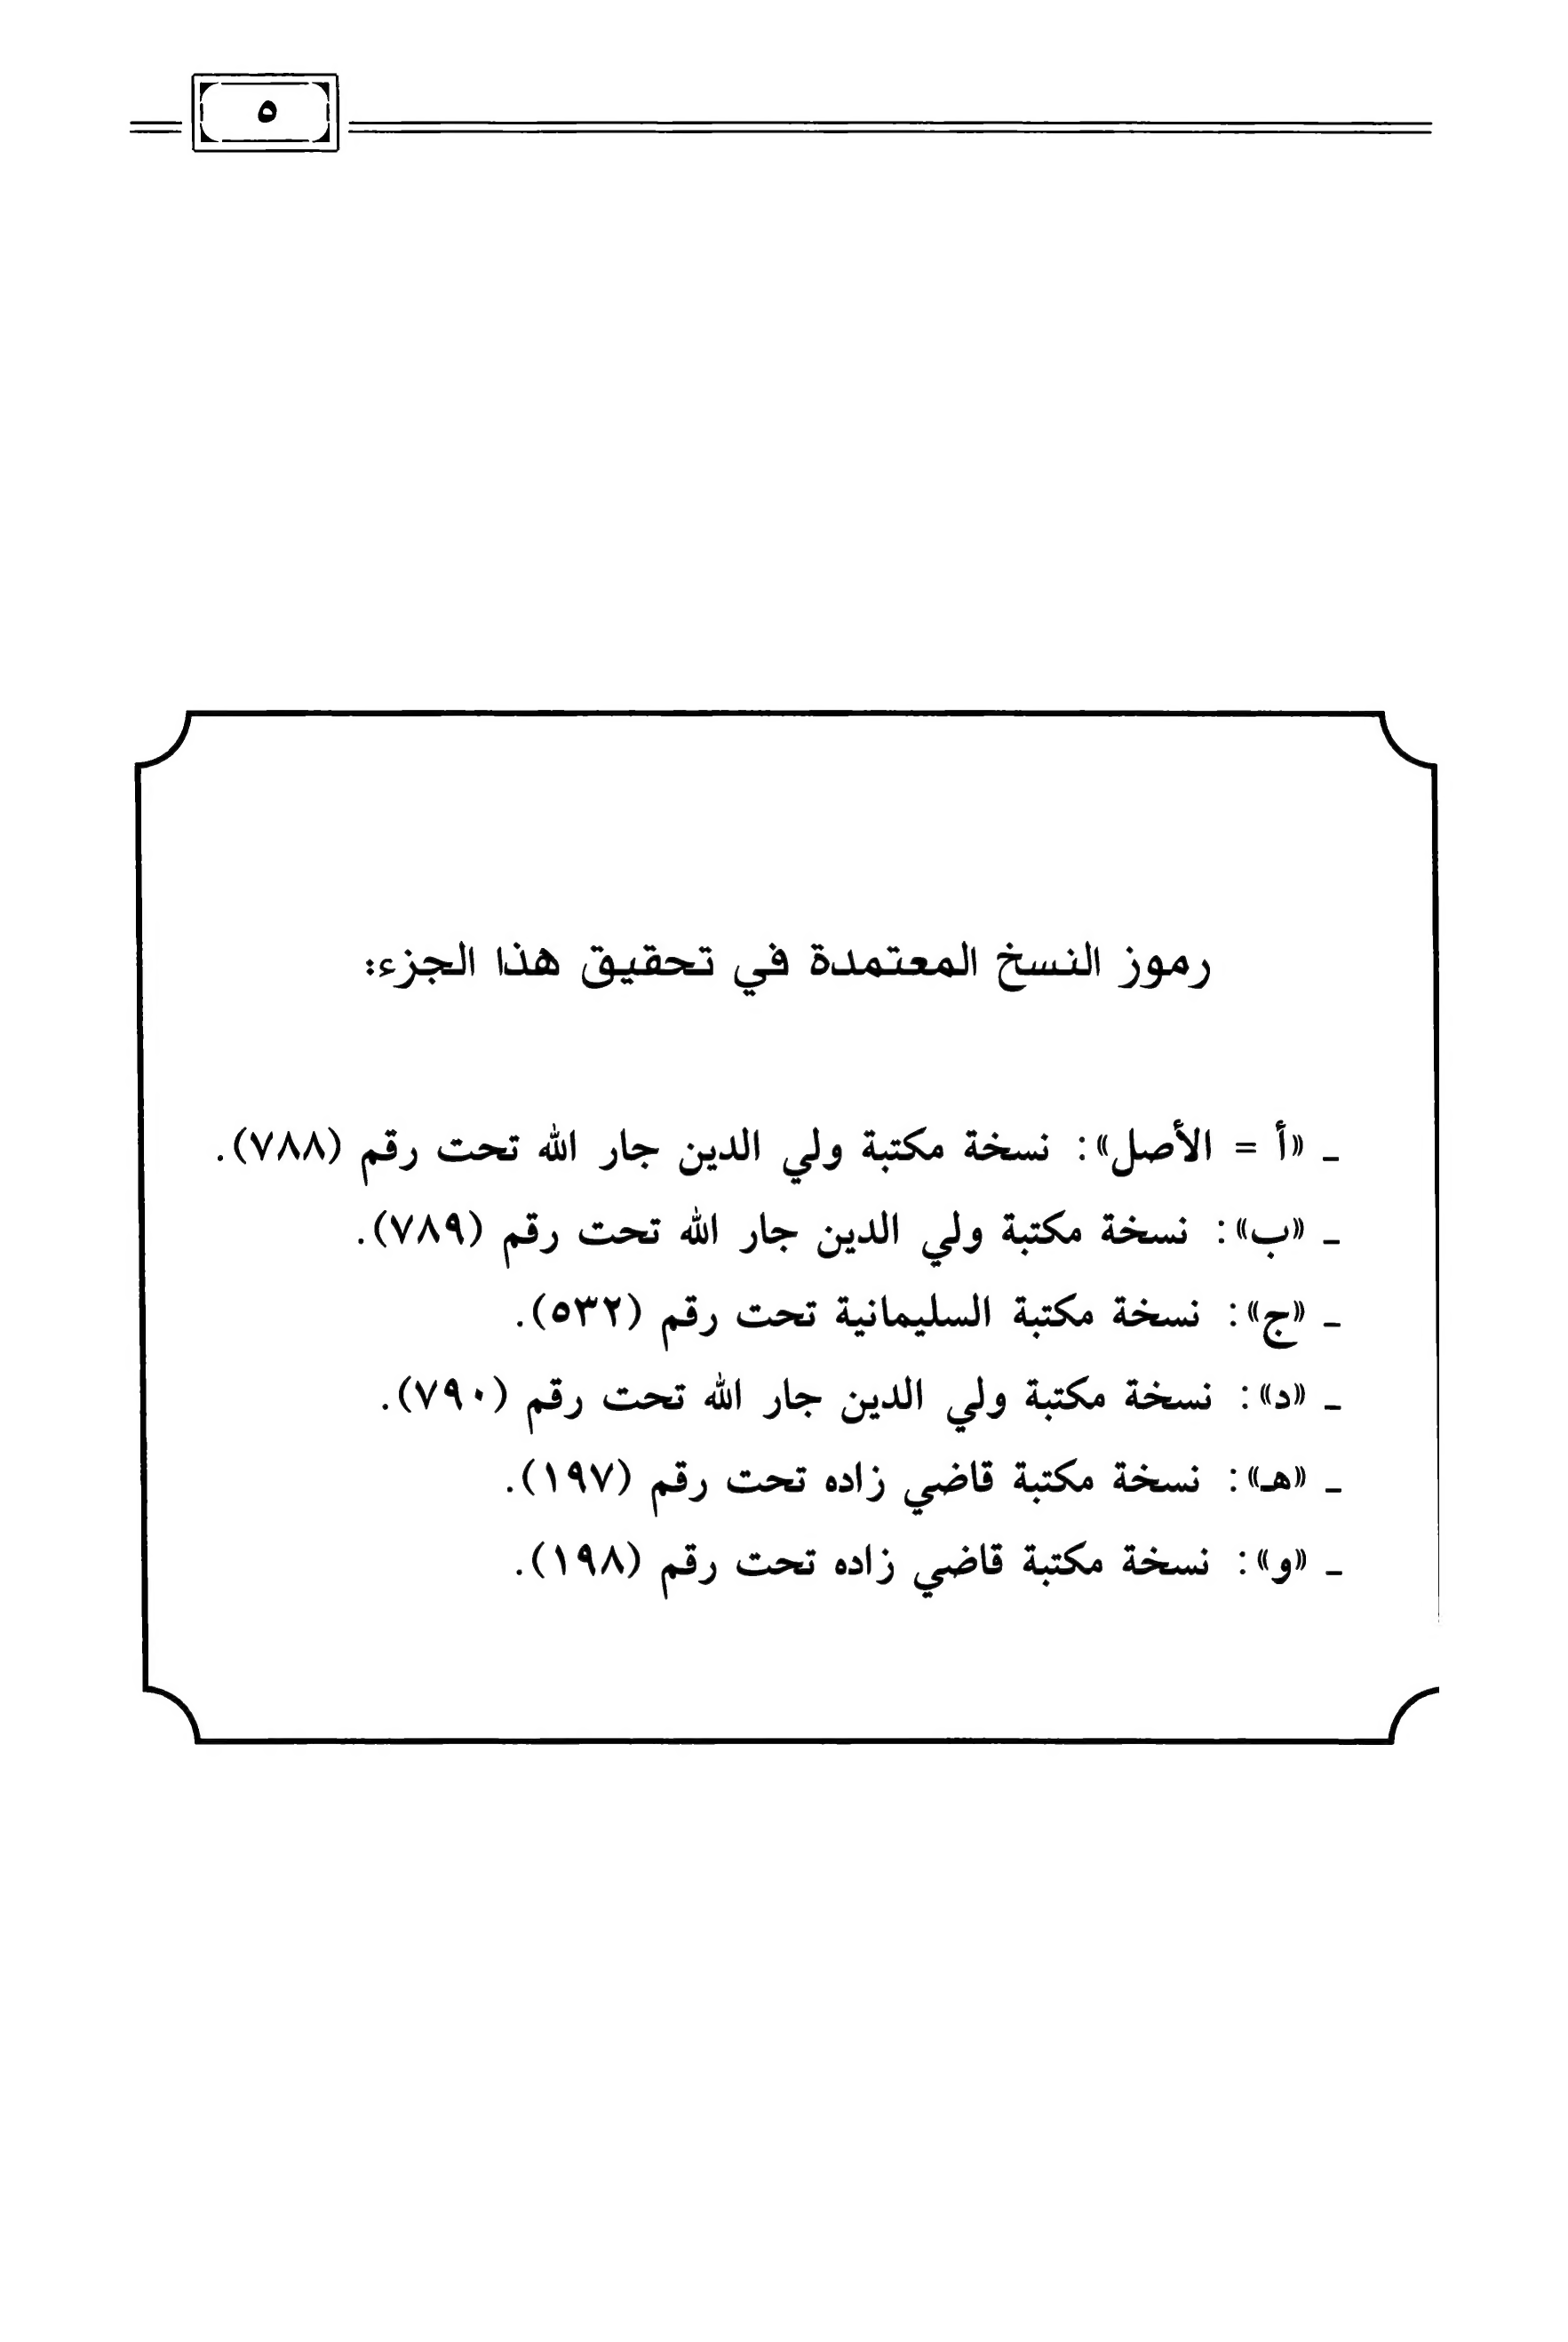 ٥
رموز النسخ المعتمدة في تحقيق هذا الجزء:
ـ «أ = الأصل»: نسخة مكتبة ولي الدين جار الله تحت رقم (٧٨٨).
ـ «ب»: نسخة مكتبة ولي الدين جار الله تحت رقم (٧٨٩).
ـ «ج»: نسخة مكتبة السليمانية تحت رقم (٥٣٢).
ـ «د»: نسخة مكتبة ولي الدين جار الله تحت رقم (٧٩٠).
ـ «هـ»: نسخة مكتبة قاضي زاده تحت رقم (١٩٧).
ـ «و»: نسخة مكتبة قاضي زاده تحت رقم (١٩٨).